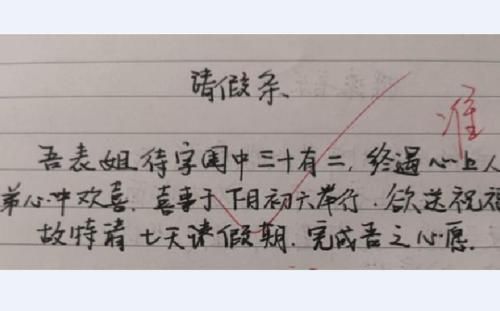 请假条
准
吾表姐待字闺中三十有二，终遇心上人
弟心中欢喜，喜事于下月初六举行，欲送祝福
故特请七天请假期，完成吾之心愿。